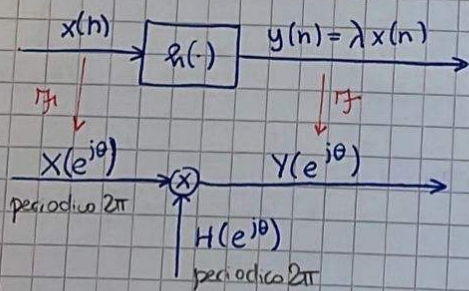 x(n)
h(·)
y(n) = λ x(n)
F
F
X(e^{jθ})
Y(e^{jθ})
periodico 2π
×
H(e^{jθ})
periodico 2π